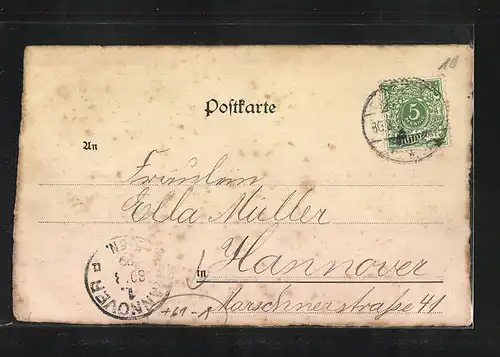 10
Postkarte
5
An
Fräulein
Ella Müller
in Hannover
Marschnerstraße 41
HANNOVER